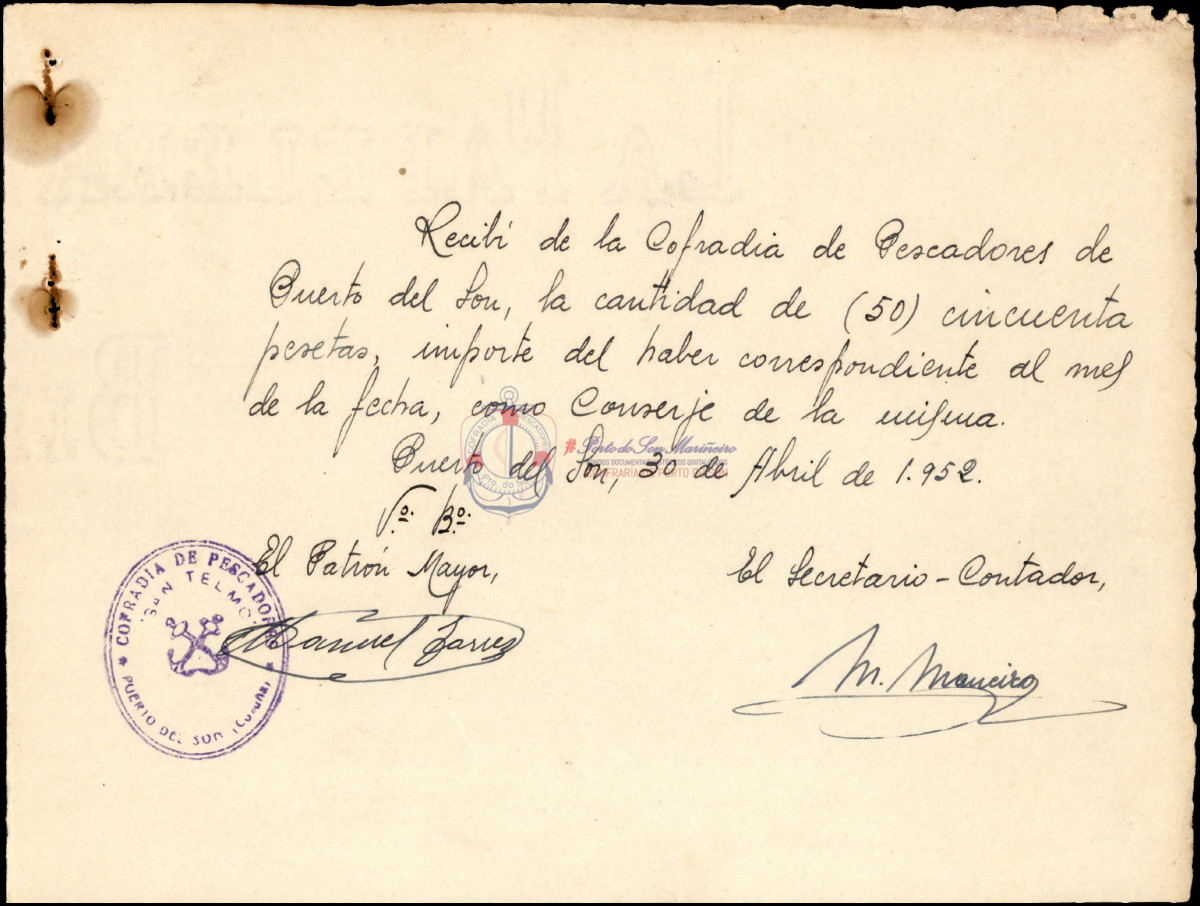 Recibí de la Cofradia de Pescadores de
Puerto del Son, la cantidad de (50) cincuenta
pesetas, importe del haber correspondiente al mes
de la fecha, como Conserje de la misma.
Puerto del Son, 30 de Abril de 1.952.
Vº. Bº.
El Patrón Mayor,
El Secretario-Contador,
Manuel
M. Maneiro
* COFRADIA DE PESCADORES *
"SAN TELMO"
PUERTO DEL SON (Coruña)
COFRADIA PESCADORES
Pto. do Son
#Porto do Son Mariñeiro